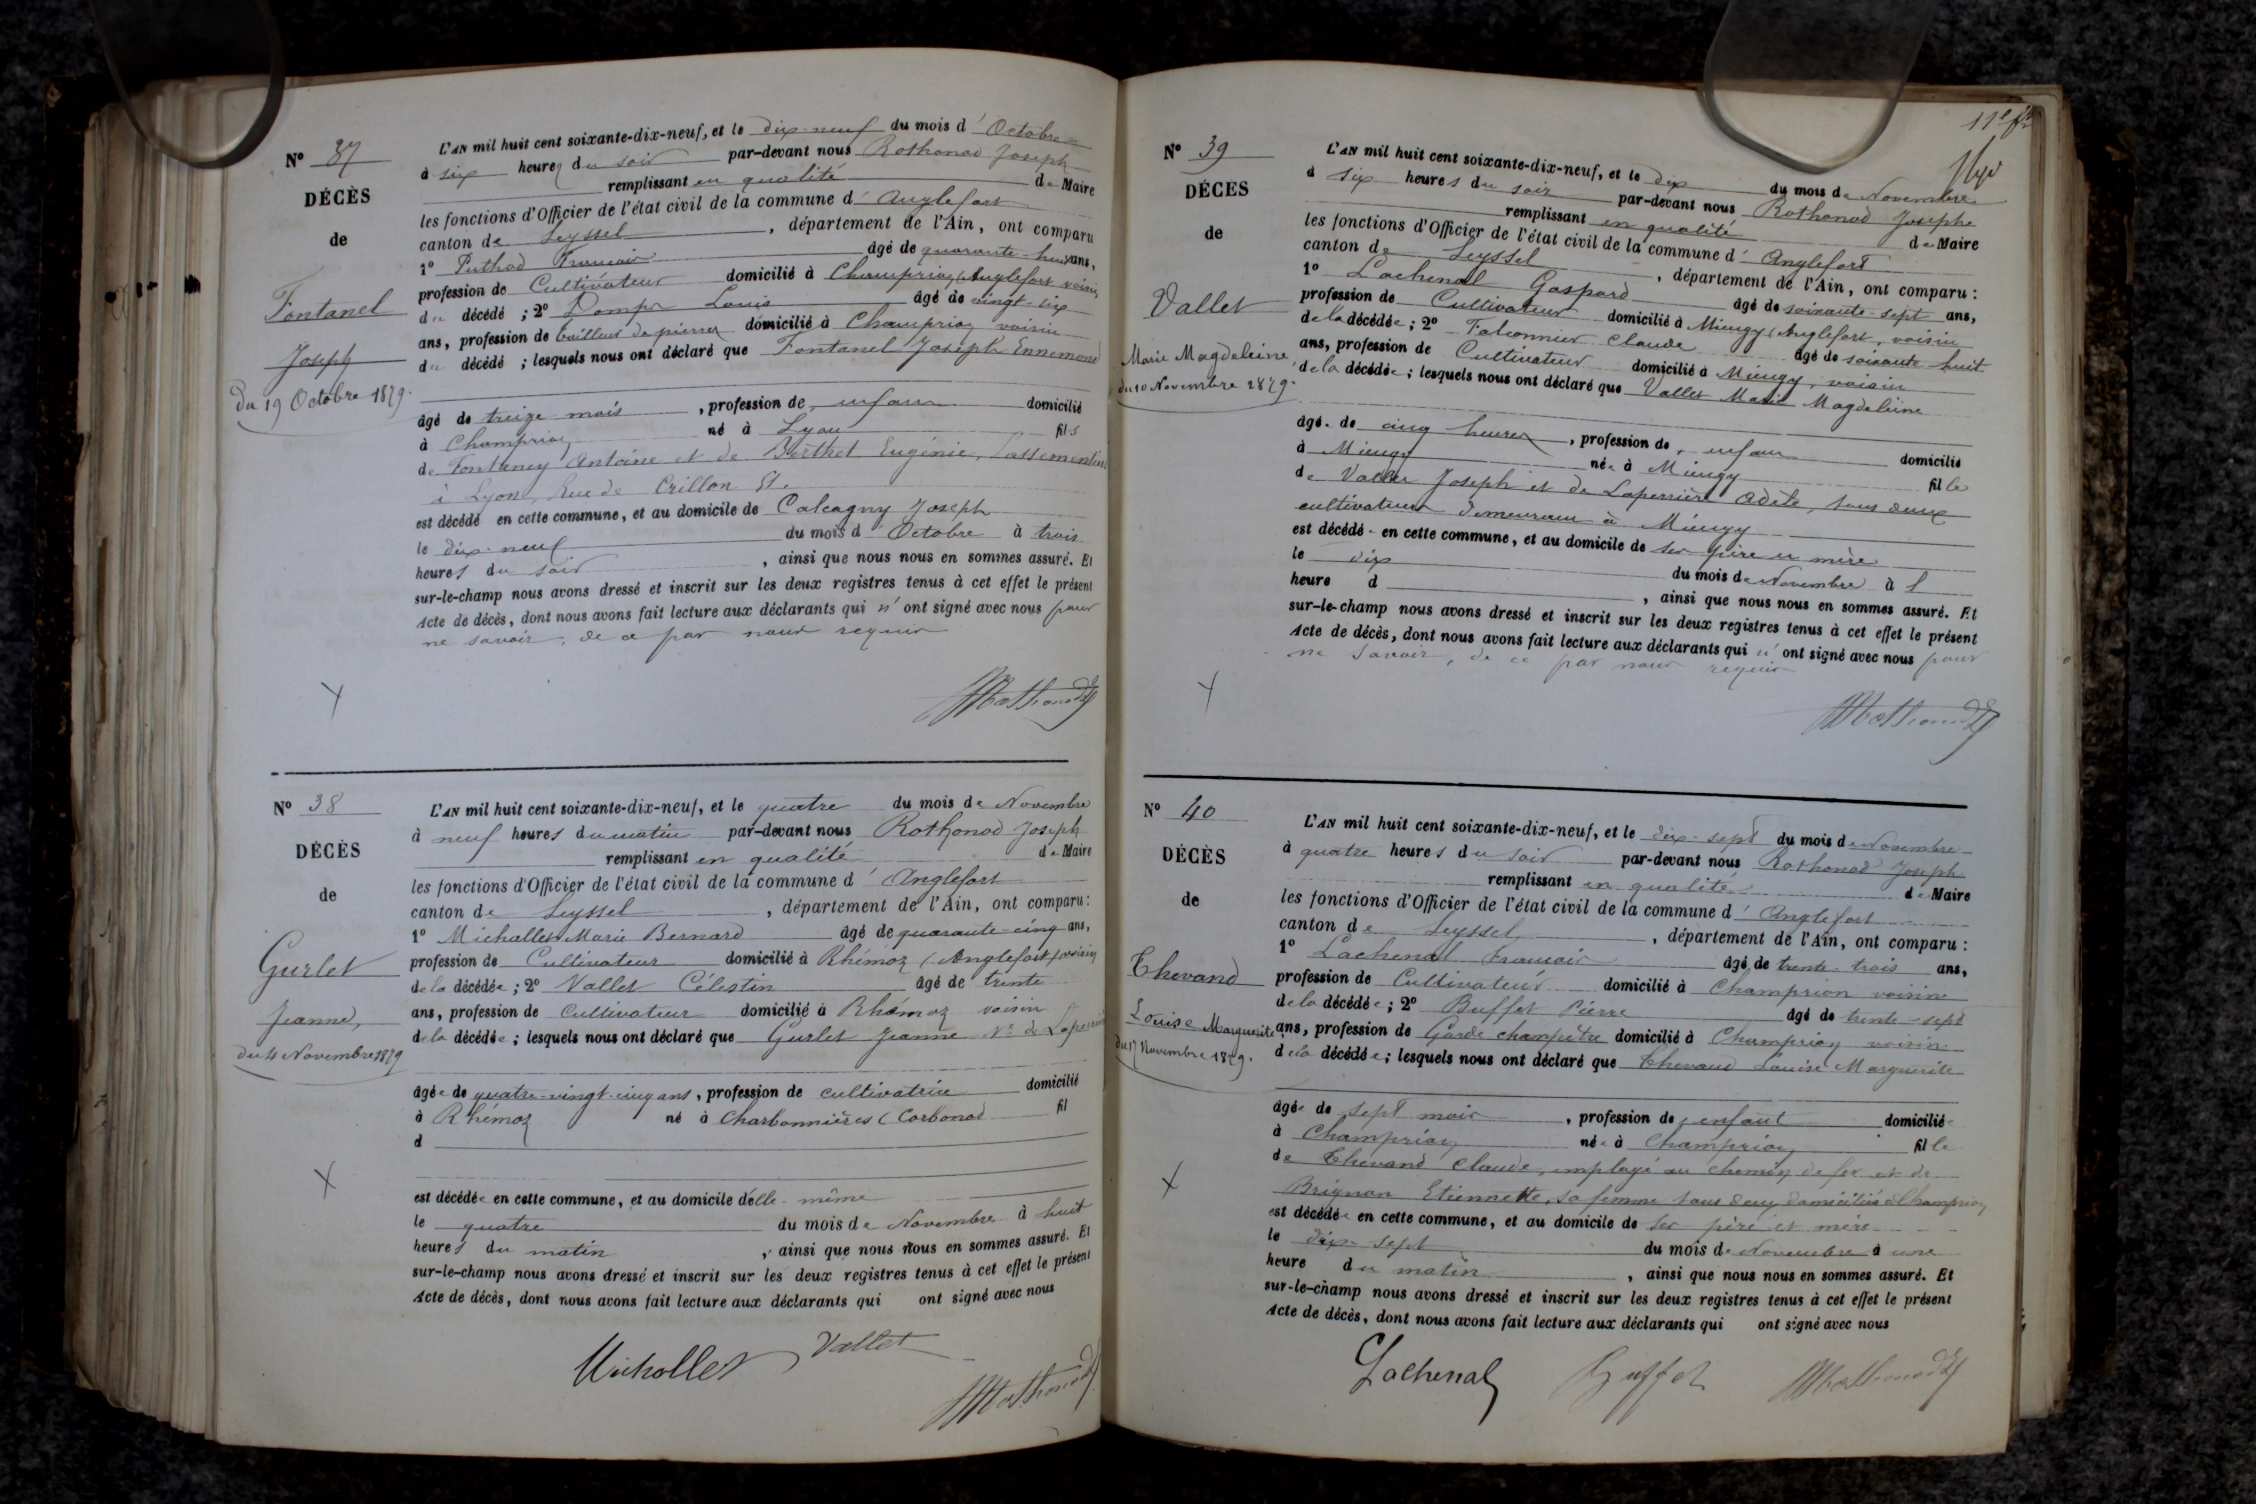 N° 37
DÉCÈS
de
Fontanel
Joseph
du 19 Octobre 1879.
L'AN mil huit cent soixante-dix-neuf, et le dix-neuf du mois d'Octobre
à six heures du soir par-devant nous Rothonod Joseph
remplissant en qualité de Maire
les fonctions d'Officier de l'état civil de la commune d'Anglefort
canton de Seyssel, département de l'Ain, ont comparu
1° Puthod François âgé de quarante-huit ans,
profession de Cultivateur domicilié à Champriond (Anglefort voisin
du décédé ; 2° Louis âgé de vingt-six
ans, profession de tailleur de pierres domicilié à Champriond voisin
du décédé ; lesquels nous ont déclaré que Fontanel Joseph Ennemond
âgé de treize mois, profession de enfant domicilié
à né à Lyon fils
de Antoine et de Berthet Eugénie, Passementiers
à Lyon, Rue de Crillon 51.
est décédé en cette commune, et au domicile de Calcagny Joseph
le dix-neuf du mois d'Octobre à trois
heures du soir, ainsi que nous nous en sommes assuré. Et
sur-le-champ nous avons dressé et inscrit sur les deux registres tenus à cet effet le présent
Acte de décès, dont nous avons fait lecture aux déclarants qui n'ont signé avec nous pour
ne savoir, de ce par nous requis
Rothonod J
N° 38
DÉCÈS
de
Gurlet
Jeanne,
du 4 Novembre 1879
L'AN mil huit cent soixante-dix-neuf, et le quatre du mois de Novembre
à neuf heures du matin par-devant nous Rothonod Joseph
remplissant en qualité de Maire
les fonctions d'Officier de l'état civil de la commune d'Anglefort
canton de Seyssel, département de l'Ain, ont comparu :
1° Michallet Marie Bernard âgé de quarante-cinq ans,
profession de Cultivateur domicilié à Rhémoz (Anglefort) voisin
de la décédée ; 2° Vallet Célestin âgé de trente
ans, profession de Cultivateur domicilié à Rhémoz voisin
de la décédée ; lesquels nous ont déclaré que Gurlet Jeanne Vve de
âgée de quatre-vingt-cinq ans, profession de cultivatrice domicilié
à Rhémoz né à Charbonnières (Corbonod fil
d
est décédée en cette commune, et au domicile d'elle-même
le quatre du mois de Novembre à huit
heures du matin, ainsi que nous nous en sommes assuré. Et
sur-le-champ nous avons dressé et inscrit sur les deux registres tenus à cet effet le présent
Acte de décès, dont nous avons fait lecture aux déclarants qui ont signé avec nous
Michallet Vallet
Rothonod J
N° 39
DÉCÈS
de
Vallet
Marie Magdeleine
du 10 Novembre 1879.
L'AN mil huit cent soixante-dix-neuf, et le dix du mois de Novembre
à six heures du soir par-devant nous Rothonod Josephe
remplissant en qualité de Maire
les fonctions d'Officier de l'état civil de la commune d'Anglefort
canton de Seyssel, département de l'Ain, ont comparu :
1° Lachenal Gaspard âgé de soixante-sept ans,
profession de Cultivateur domicilié à Mieugy (Anglefort, voisin
de la décédée ; 2° Falconnier Claude âgé de soixante-huit
ans, profession de Cultivateur domicilié à Mieugy, voisin
de la décédée ; lesquels nous ont déclaré que Vallet Marie Magdeleine
âgé. de cinq heures, profession de, enfant domicilié
à Mieugy née à Mieugy fille
de Vallet Joseph et de Laperrière Adèle, tous deux
cultivateurs demeurant à Mieugy
est décédé en cette commune, et au domicile de ses père et mère
le dix du mois de Novembre à 1
heure d, ainsi que nous nous en sommes assuré. Et
sur-le-champ nous avons dressé et inscrit sur les deux registres tenus à cet effet le présent
Acte de décès, dont nous avons fait lecture aux déclarants qui n'ont signé avec nous pour
ne savoir, de ce par nous requis
Rothonod J
N° 40
DÉCÈS
de
Thevand
Louise Marguerite
du 17 Novembre 1879.
L'AN mil huit cent soixante-dix-neuf, et le dix-sept du mois de Novembre
à quatre heures du soir par-devant nous Rothonod Joseph
remplissant en qualité de Maire
les fonctions d'Officier de l'état civil de la commune d'Anglefort
canton de Seyssel, département de l'Ain, ont comparu :
1° Lachenal François âgé de trente-trois ans,
profession de Cultivateur domicilié à Champrion voisin
de la décédée ; 2° Buffet Pierre âgé de trente-sept
ans, profession de Garde champêtre domicilié à voisin
de la décédée ; lesquels nous ont déclaré que Thevand Louise Marguerite
âgée de sept mois, profession de, enfant domicilié
à née à fille
de Thevand Claude, employé au chemin de fer et de
Brignon Etiennette, sa femme tous deux domiciliés à
est décédée en cette commune, et au domicile de ses père et mère
le dix-sept du mois de Novembre à une
heure du matin, ainsi que nous nous en sommes assuré. Et
sur-le-champ nous avons dressé et inscrit sur les deux registres tenus à cet effet le présent
Acte de décès, dont nous avons fait lecture aux déclarants qui ont signé avec nous
Lachenal Buffet Rothonod J